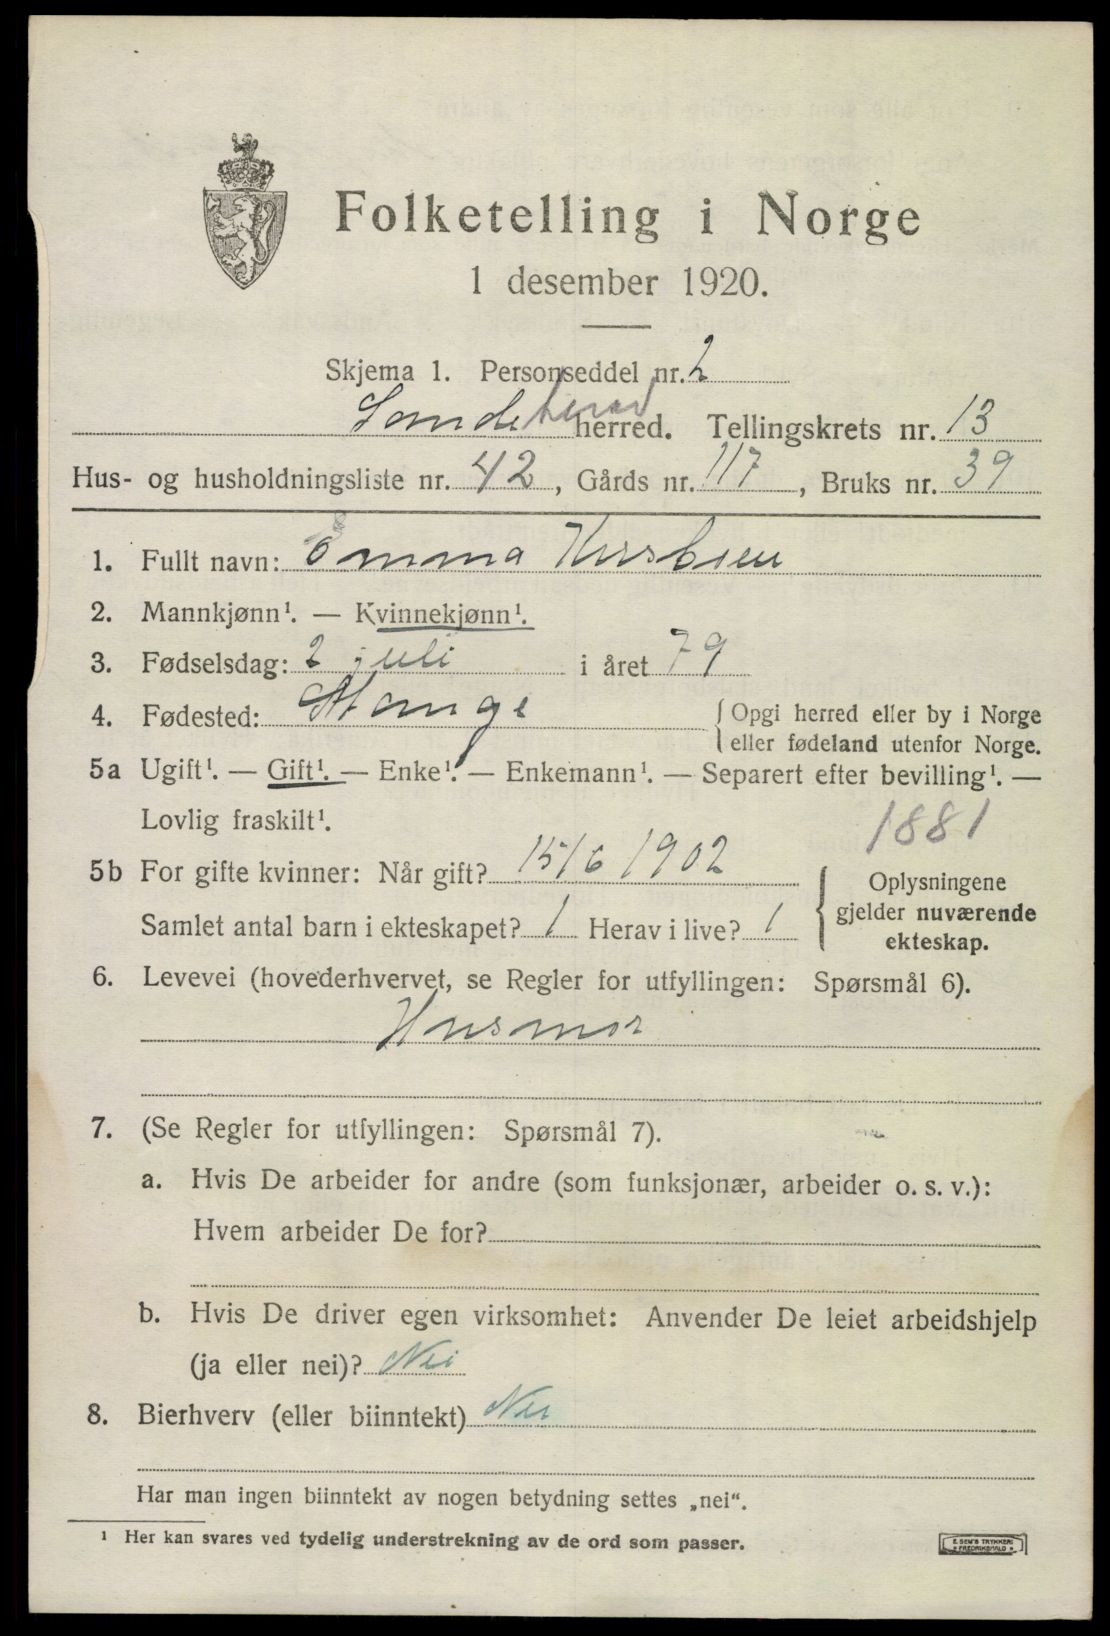 Folketelling i Norge
1 desember 1920.
Skjema 1. Personseddel nr. 2
Sandeherad herred. Tellingskrets nr. 13
Hus- og husholdningsliste nr. 42, Gårds nr. 117, Bruks nr. 39
1. Fullt navn: Emma
2. Mannkjønn¹. — Kvinnekjønn¹.
3. Fødselsdag: 2 juli i året 79
4. Fødested: Stange {Opgi herred eller by i Norge
eller fødeland utenfor Norge.
5a Ugift¹. — Gift¹. — Enke¹. — Enkemann¹. — Separert efter bevilling¹. —
Lovlig fraskilt¹.
1881
5b For gifte kvinner: Når gift? 15/6 1902
Samlet antal barn i ekteskapet? 1 Herav i live? 1
{Oplysningene
gjelder nuværende
ekteskap.
6. Levevei (hovederhvervet, se Regler for utfyllingen: Spørsmål 6).
Husmor
7. (Se Regler for utfyllingen: Spørsmål 7).
a. Hvis De arbeider for andre (som funksjonær, arbeider o. s. v.):
Hvem arbeider De for?
b. Hvis De driver egen virksomhet: Anvender De leiet arbeidshjelp
(ja eller nei)? Nei
8. Bierhverv (eller biinntekt) Nei
Har man ingen biinntekt av nogen betydning settes „nei“.
¹ Her kan svares ved tydelig understrekning av de ord som passer.
E. SEM'S TRYKKERI
FREDRIKSHALD